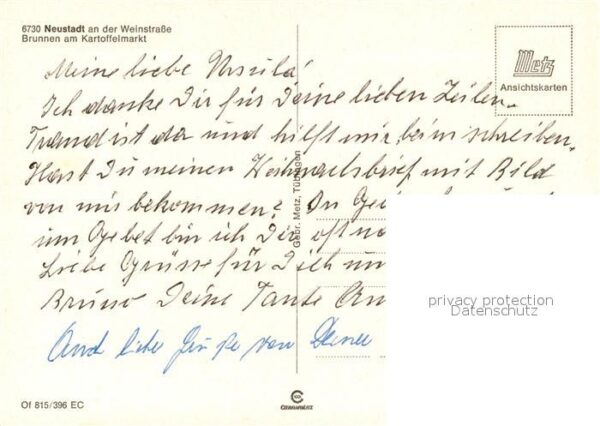 6730 Neustadt an der Weinstraße
Brunnen am Kartoffelmarkt
Metz
Ansichtskarten
Meine liebe Ursula!
Ich danke Dir für Deine lieben Zeilen.
Traudl ist da und hilft mir beim schreiben.
Hast Du meinen Weihnachtsbrief mit Bild
von mir bekommen? In
im Gebet bin ich Dir oft
Liebe Grüsse für Dich
Bruno Deine Tante
Und liebe Grüße von
Gebr. Metz, Tübingen
privacy protection
Datenschutz
Of 815/396 EC